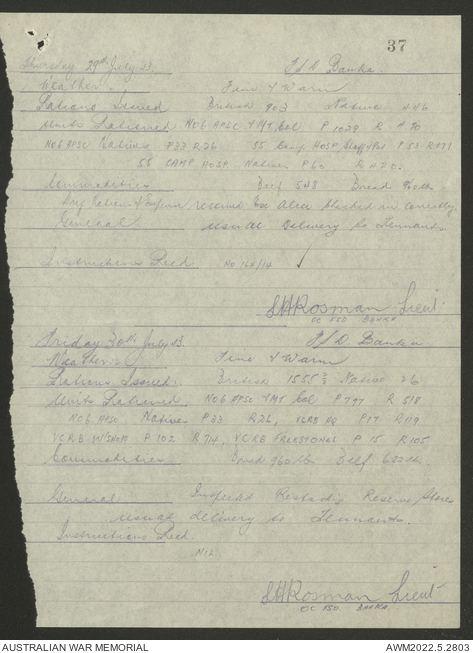 37
Thursday 29th July 43. F S D Banka.
Weather Fine & Warm
Rations Issued British 903 Native 446
Units Rationed No 6 APSC & MT Col P 1029 R 490
No 6 APSC Natives P33 R26 55 Camp Hosp Staff & Pts P 53 R 471
55 CAMP HOSP Natives P60 R 420.
Commodities Beef 548 Bread 960 lbs
Dry Rations & reserve Ex Alice checked in correctly
General usual Delivery to Tennants.
Instructions Recd RO 162/14
S H Rosman Lieut
OC FSD BANKA
Friday 30th July 43. F S D Banka
Weather Fine & Warm
Rations Issued. British 1555 Native 26
Units Rationed No 6 APSC & MT Col P 797 R 518
No 6 APSC Natives P33 R26, VCRB HQ P17 R 119
VCRB W/SHOPS P 102 R 714, VCRB P 15 R105
Commodities Bread 960 lbs Beef lbs.
General Inspected Restacking Reserve Stores
usual delivery to Tennants.
Instructions Recd.
NIL.
S H Rosman Lieut
OC FSD. BANKA
AUSTRALIAN WAR MEMORIAL AWM2022.5.2803